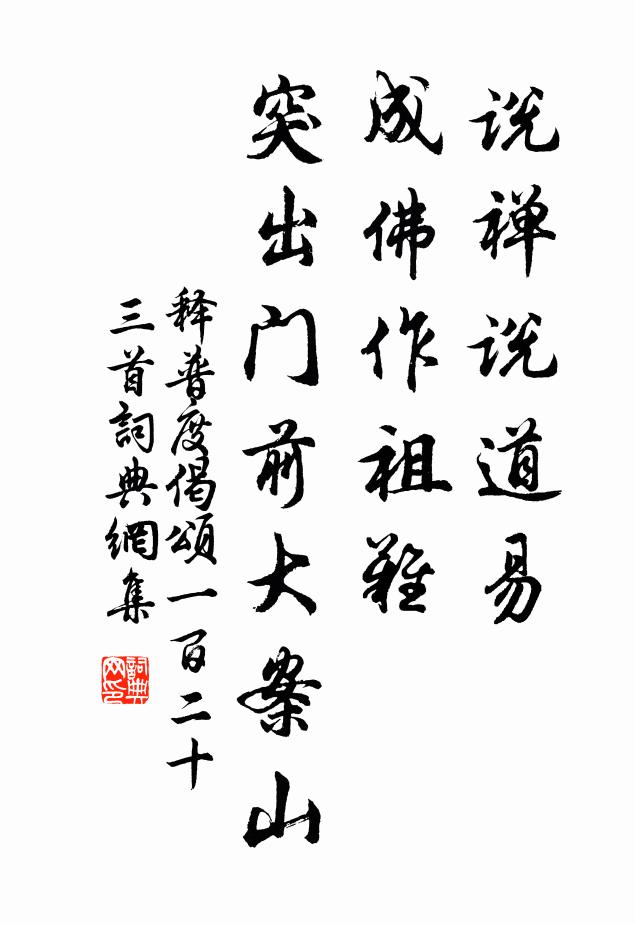 说禅说道易
成佛作祖难
突出门前大案山
释普度偈頌一百二十
三首詞典網集
詞典網印